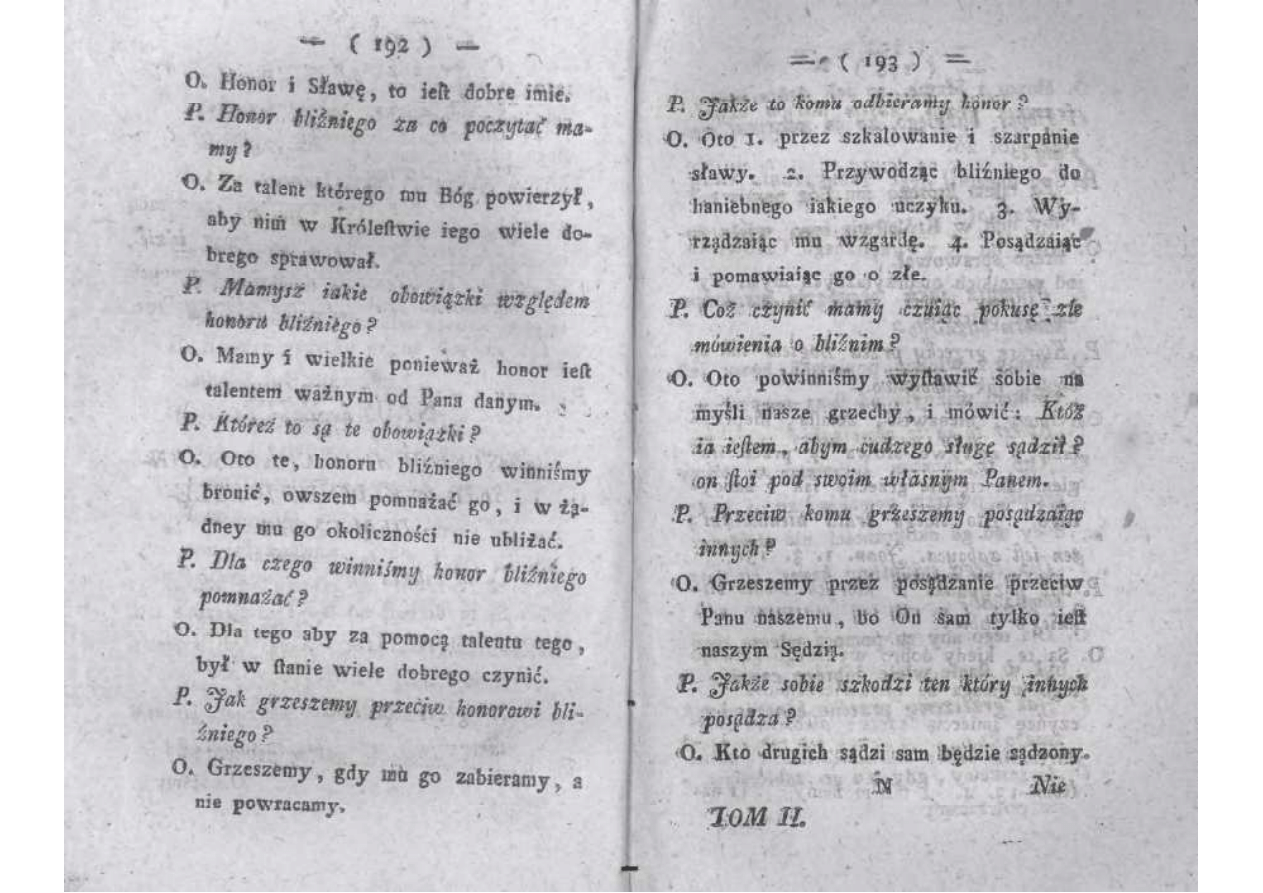 — ( 192 ) —
O. Honor i Sławę, to ieſt dobre imie.
P. Honor bliźniego za co poczytać ma-
my?
O. Za talent którego mu Bóg powierzył,
aby nim w Króleſtwie iego wiele do-
brego sprawował.
P. Mamysz iakie obowiązki względem
honoru bliźniego?
O. Mamy i wielkie ponieważ honor ieſt
talentem ważnym od Pana danym.
P. Któreż to są te obowiązki?
O. Oto te, honoru bliźniego winniśmy
bronić, owszem pomnażać go, i w żą-
dney mu go okoliczności nie ubliżać.
P. Dla czego winniśmy honor bliźniego
pomnażać?
O. Dla tego aby za pomocą talentu tego,
był w ſtanie wiele dobrego czynić.
P. Jak grzeszemy przeciw honorowi bli-
źniego?
O. Grzeszemy, gdy mu go zabieramy, a
nie powracamy.
= ( 193 ) =
P. Jakże to komu odbieramy honor?
O. Oto 1. przez szkalowanie i szarpanie
sławy. 2. Przywodząc bliźniego do
haniebnego iakiego uczyku. 3. Wy-
rządzaiąc mu wzgardę. 4. Posądzaiąc
i pomawiaiąc go o złe.
P. Coż czynić mamy czuiąc pokusę złe
mówienia o bliźnim?
O. Oto powinniśmy wyſtawić sobie na
myśli nasze grzechy, i mówić: Któż
ia ieſtem, abym cudzego sługę sądził?
on ſtoi pod swoim własnym Panem.
P. Przeciw komu grzeszemy posądzaiąc
innych?
O. Grzeszemy przez posądzanie przeciw
Panu naszemu, bo On sam tylko ieſt
naszym Sędzią.
P. Jakże sobie szkodzi ten który innych
posądza?
O. Kto drugich sądzi sam będzie sądzony.
N Nie
TOM II.